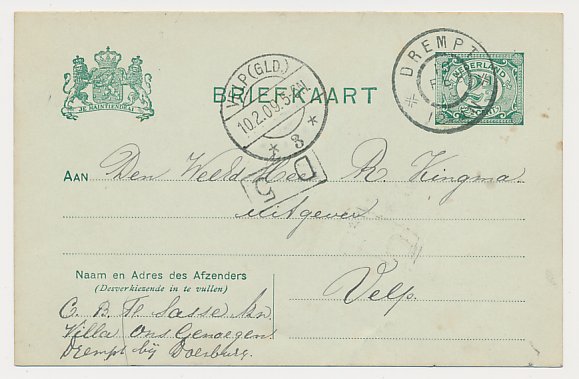 JE MAINTIENDRAI
BRIEFKAART
VELP (GLD.)
10.2.09.5
8
DREMPT
NEDERLAND
D
5
AAN Den Weled. Heer R. Kingma
Uitgever
Velp.
Naam en Adres des Afzenders
(Desverkiezende in te vullen)
C. B. Te Sasse
Villa Ons Genoegen
Drempt bij Doesburg.